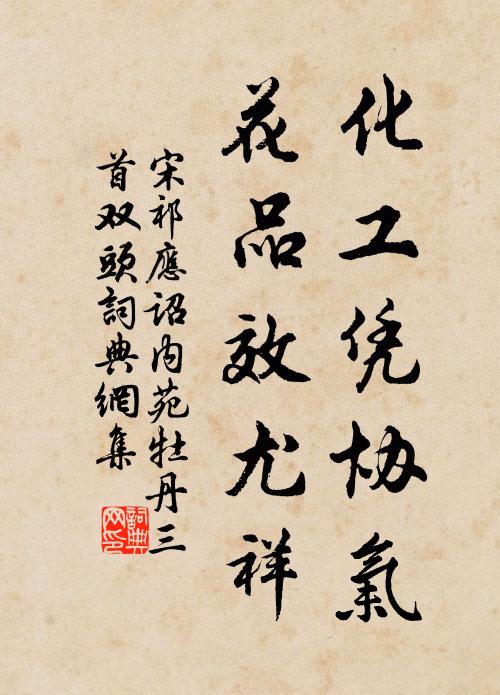 化工凭协氣
花品效尤祥
宋祁應詔内苑牡丹三
首双頭詞典網集
詞典
网印